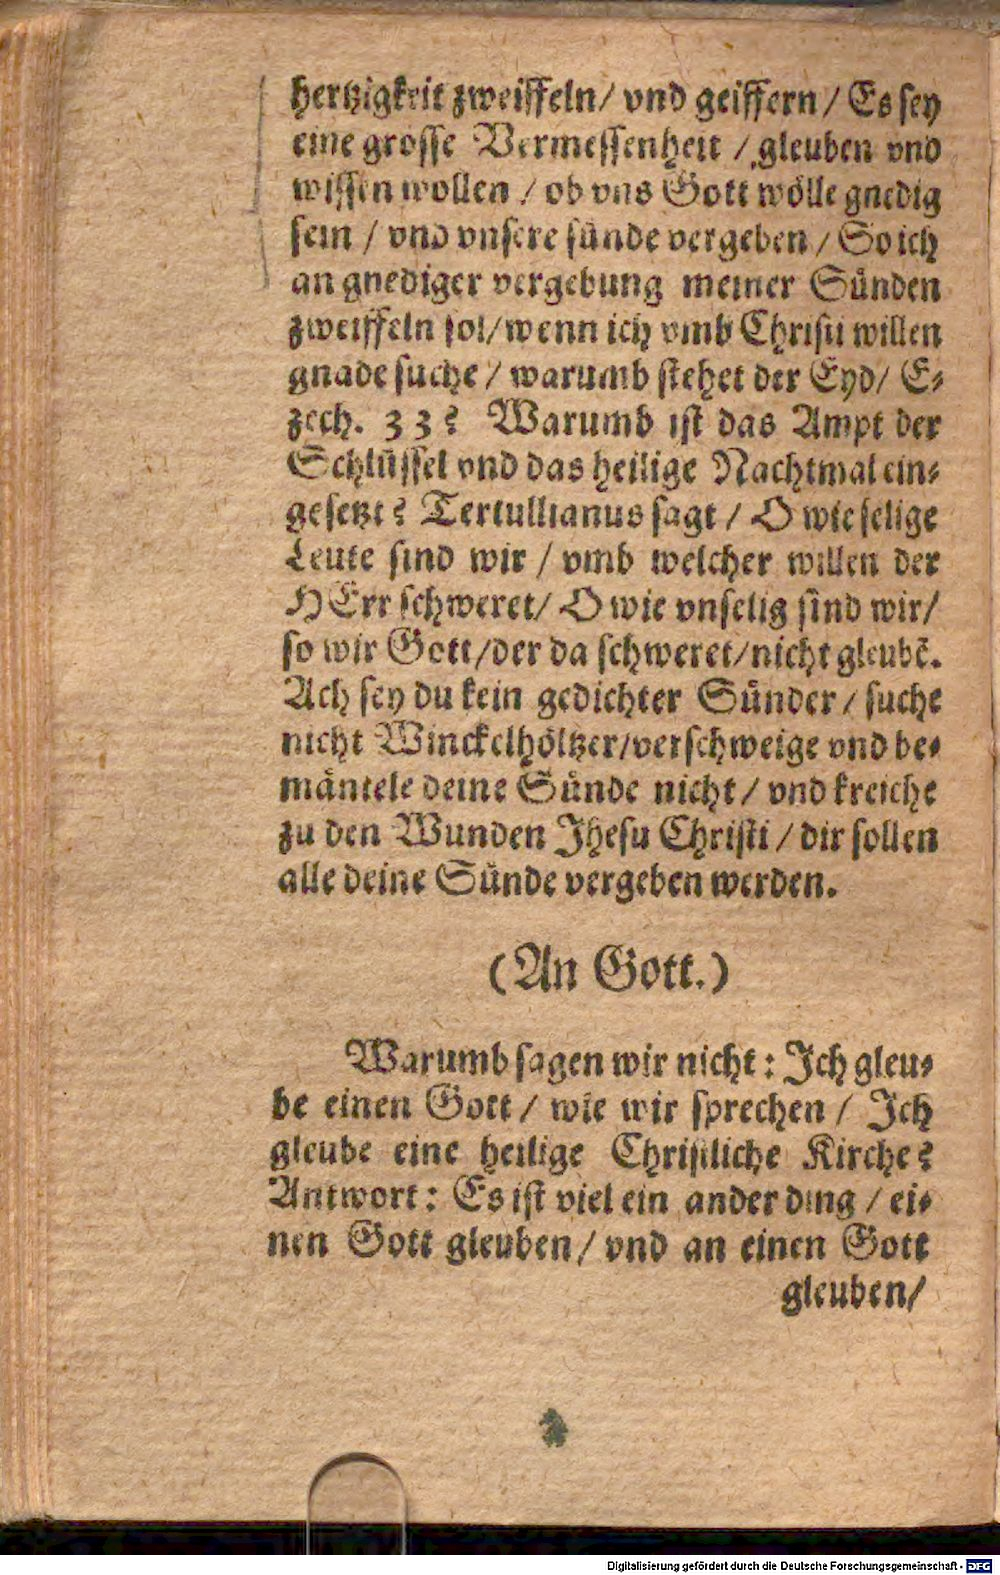 hertzigkeit zweiffeln/ vnd geiffern/ Es sey
eine grosse Vermessenheit / gleuben vnd
wissen wollen / ob vns Gott wölle gnedig
sein / vnd vnsere sünde vergeben / So ich
an gnediger vergebung meiner Sünden
zweiffeln sol/ wenn ich vmb Christi willen
gnade suche / warumb stehet der Eyd/ E-
zech. 33? Warumb ist das Ampt der
Schlüssel vnd das heilige Nachtmal ein-
gesetzt? Tertullianus sagt / O wie selige
Leute sind wir / vmb welcher willen der
HErr schweret/ O wie vnselig sind wir/
so wir Gott/der da schweret/nicht gleubē.
Ach sey du kein gedichter Sünder / suche
nicht Winckelhöltzer/verschweige vnd be-
mäntele deine Sünde nicht / vnd kreiche
zu den Wunden Jhesu Christi / dir sollen
alle deine Sünde vergeben werden.
(An Gott.)
Warumb sagen wir nicht: Ich gleu-
be einen Gott / wie wir sprechen / Ich
gleube eine heilige Christliche Kirche?
Antwort: Es ist viel ein ander ding / ei-
nen Gott gleuben / vnd an einen Gott
gleuben/
Digitalisierung gefördert durch die Deutsche Forschungsgemeinschaft - DFG